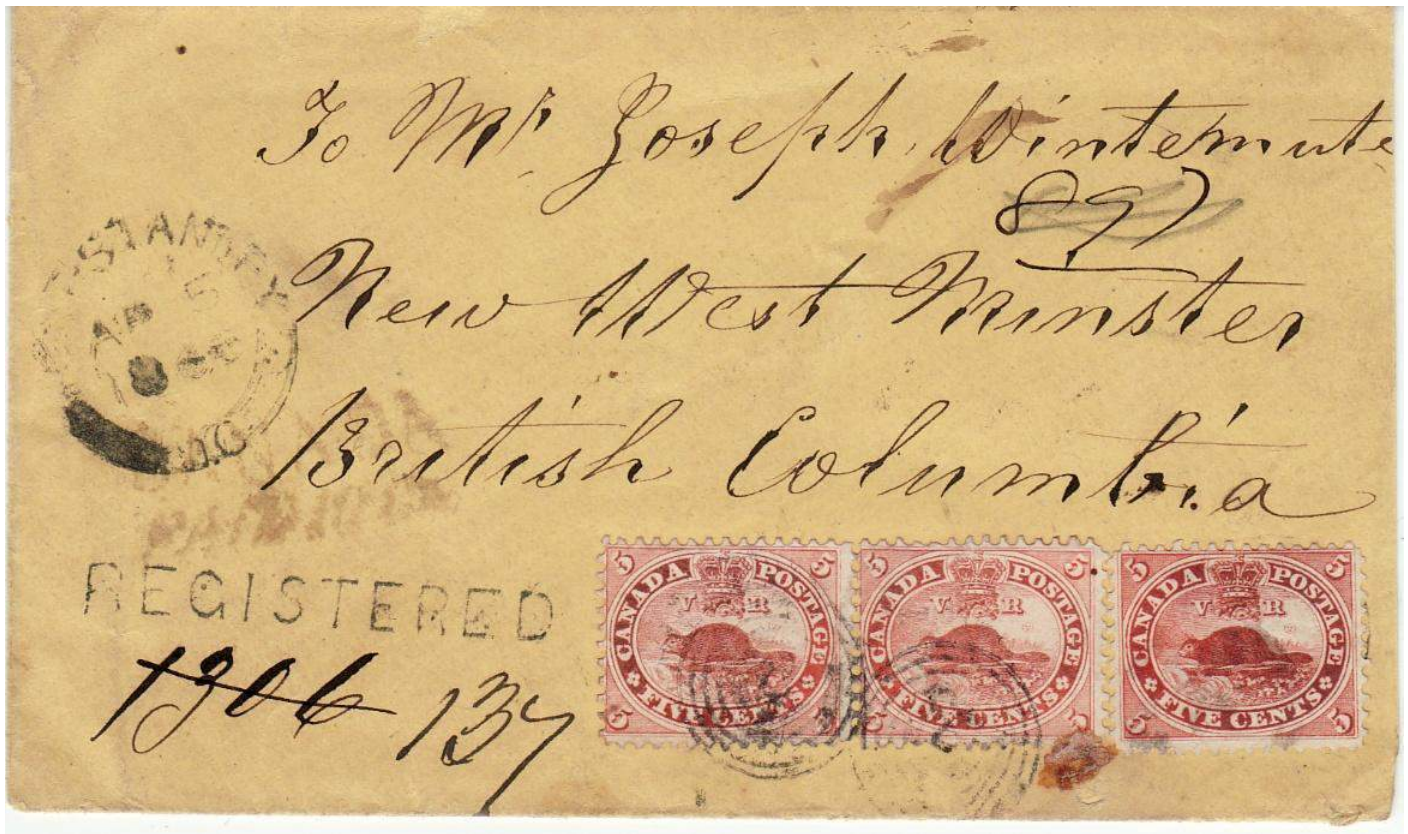 To Mr Joseph Wintemute
897
New West Minster
British Columbia
AP 5
REGISTERED
1306 137
5 CANADA POSTAGE 5
V R
5 FIVE CENTS 5
5 CANADA POSTAGE 5
V R
5 FIVE CENTS 5
5 CANADA POSTAGE 5
V R
5 FIVE CENTS 5